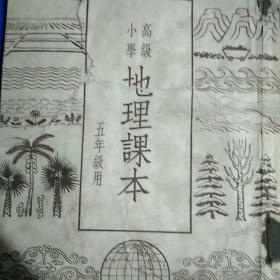 高級
小學
地理課本
五年級用